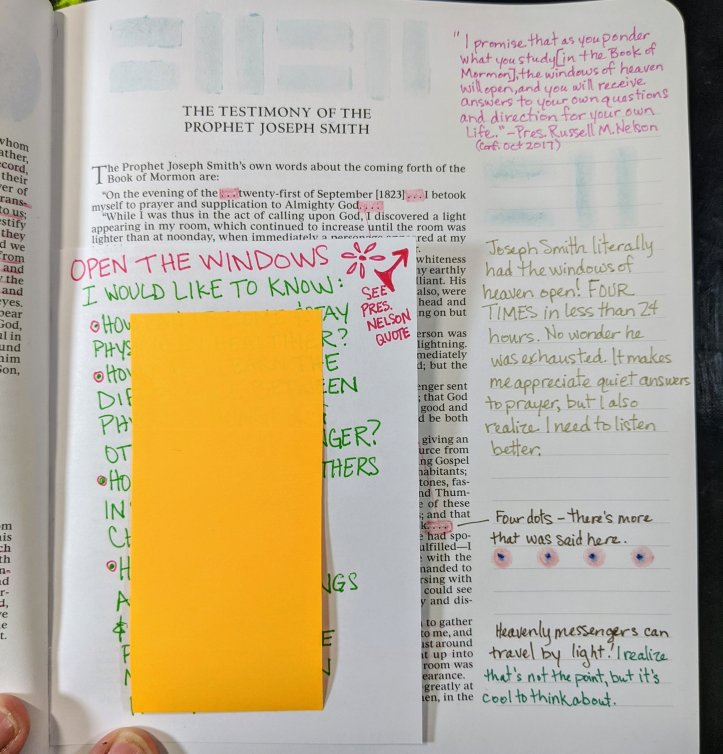 whom
ather,
ecord,
their
ver of
rans-
to us;
estify
they
d we
from
and
y the
and
eyes.
bear
God,
al in
und
him
Son,
m
is
ch
th
n-
nd
r-
d,
ve
e
t.
THE TESTIMONY OF THE
PROPHET JOSEPH SMITH
The Prophet Joseph Smith's own words about the coming forth of the
Book of Mormon are:
"On the evening of the . . . twenty-first of September [1823] . . . I betook
myself to prayer and supplication to Almighty God. . . .
"While I was thus in the act of calling upon God, I discovered a light
appearing in my room, which continued to increase until the room was
lighter than at noonday, when immediately a personage appeared at my
whiteness
ny earthly
lliant. His
also, were
head and
ng on but
erson was
lightning.
mediately
d; but the
enger sent
; that God
good and
d be both
giving an
urce from
ng Gospel
habitants;
tones, fas-
nd Thum-
e of these
; and that
k. . . .
e had spo-
ulfilled—I
with the
manded to
rsing with
could see
y and dis-
to gather
to me, and
ust around
t up into
room was
earance.
greatly at
en, in the
OPEN THE WINDOWS
I WOULD LIKE TO KNOW:
SEE
PRES.
NELSON
QUOTE
HOW STAY
PHYS R?
HOW THE
DIF EEN
PH
OT NGER?
HO THERS
IN
CH
H
A NGS
&
E
N
"I promise that as you ponder
what you study [in the Book of
Mormon], the windows of heaven
will open, and you will receive
answers to your own questions
and direction for your own
life." - Pres. Russell M. Nelson
(Conf. Oct 2017)
Joseph Smith literally
had the windows of
heaven open! FOUR
TIMES in less than 24
hours. No wonder he
was exhausted. It makes
me appreciate quiet answers
to prayer, but I also
realize I need to listen
better.
Four dots - there's more
that was said here.
Heavenly messengers can
travel by light! I realize
that's not the point, but it's
cool to think about.